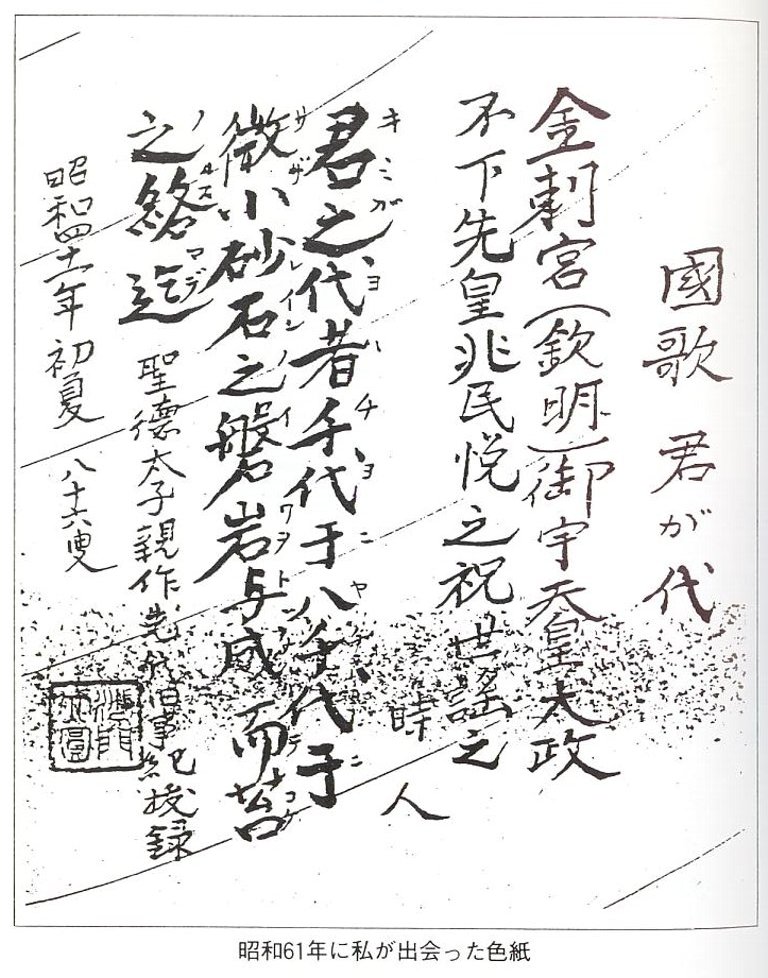 國歌 君が代
金刺宮(欽明)御宇天皇太政
不下先皇兆民悦之祝世謡之
時人
君之代者千代于八千代于
キミガヨハチヨニヤチヨニ
微小砂石之盤岩与成而苔
サザレイシノイワヲトナリテコケ
之絡迄
ノムスマデ
聖德太子親作先代旧事紀 抜録
昭和四十一年 初夏 八十六叟
昭和61年に私が出会った色紙